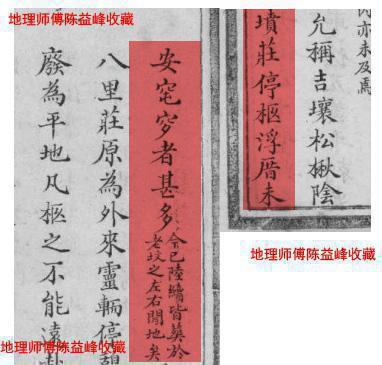 地理师傅陈益峰收藏
亦未及焉
允稱吉壤松楸陰
墳莊停柩浮厝未
安窀穸者甚多
今已陸續皆葬於
老墳之左右閒地矣
八里莊原為外來靈輀停
廢為平地凡柩之不能遠
地理师傅陈益峰收藏
地理师傅陈益峰收藏